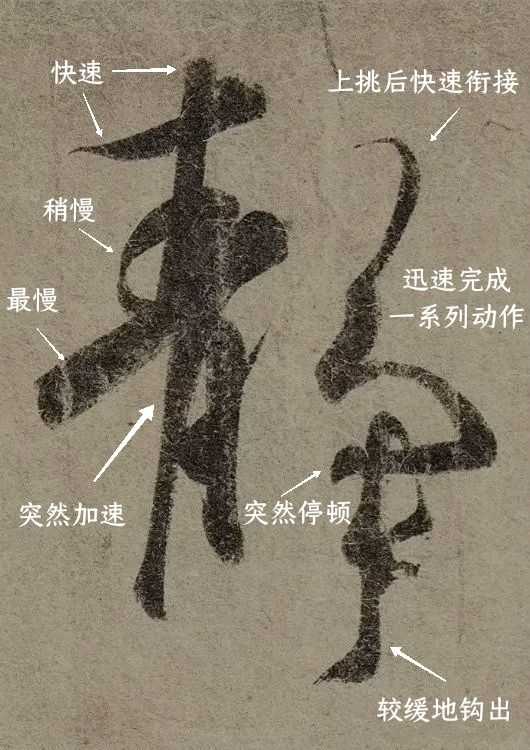 快速
上挑后快速衔接
稍慢
迅速完成
一系列动作
最慢
静
突然加速
突然停顿
较缓地钩出